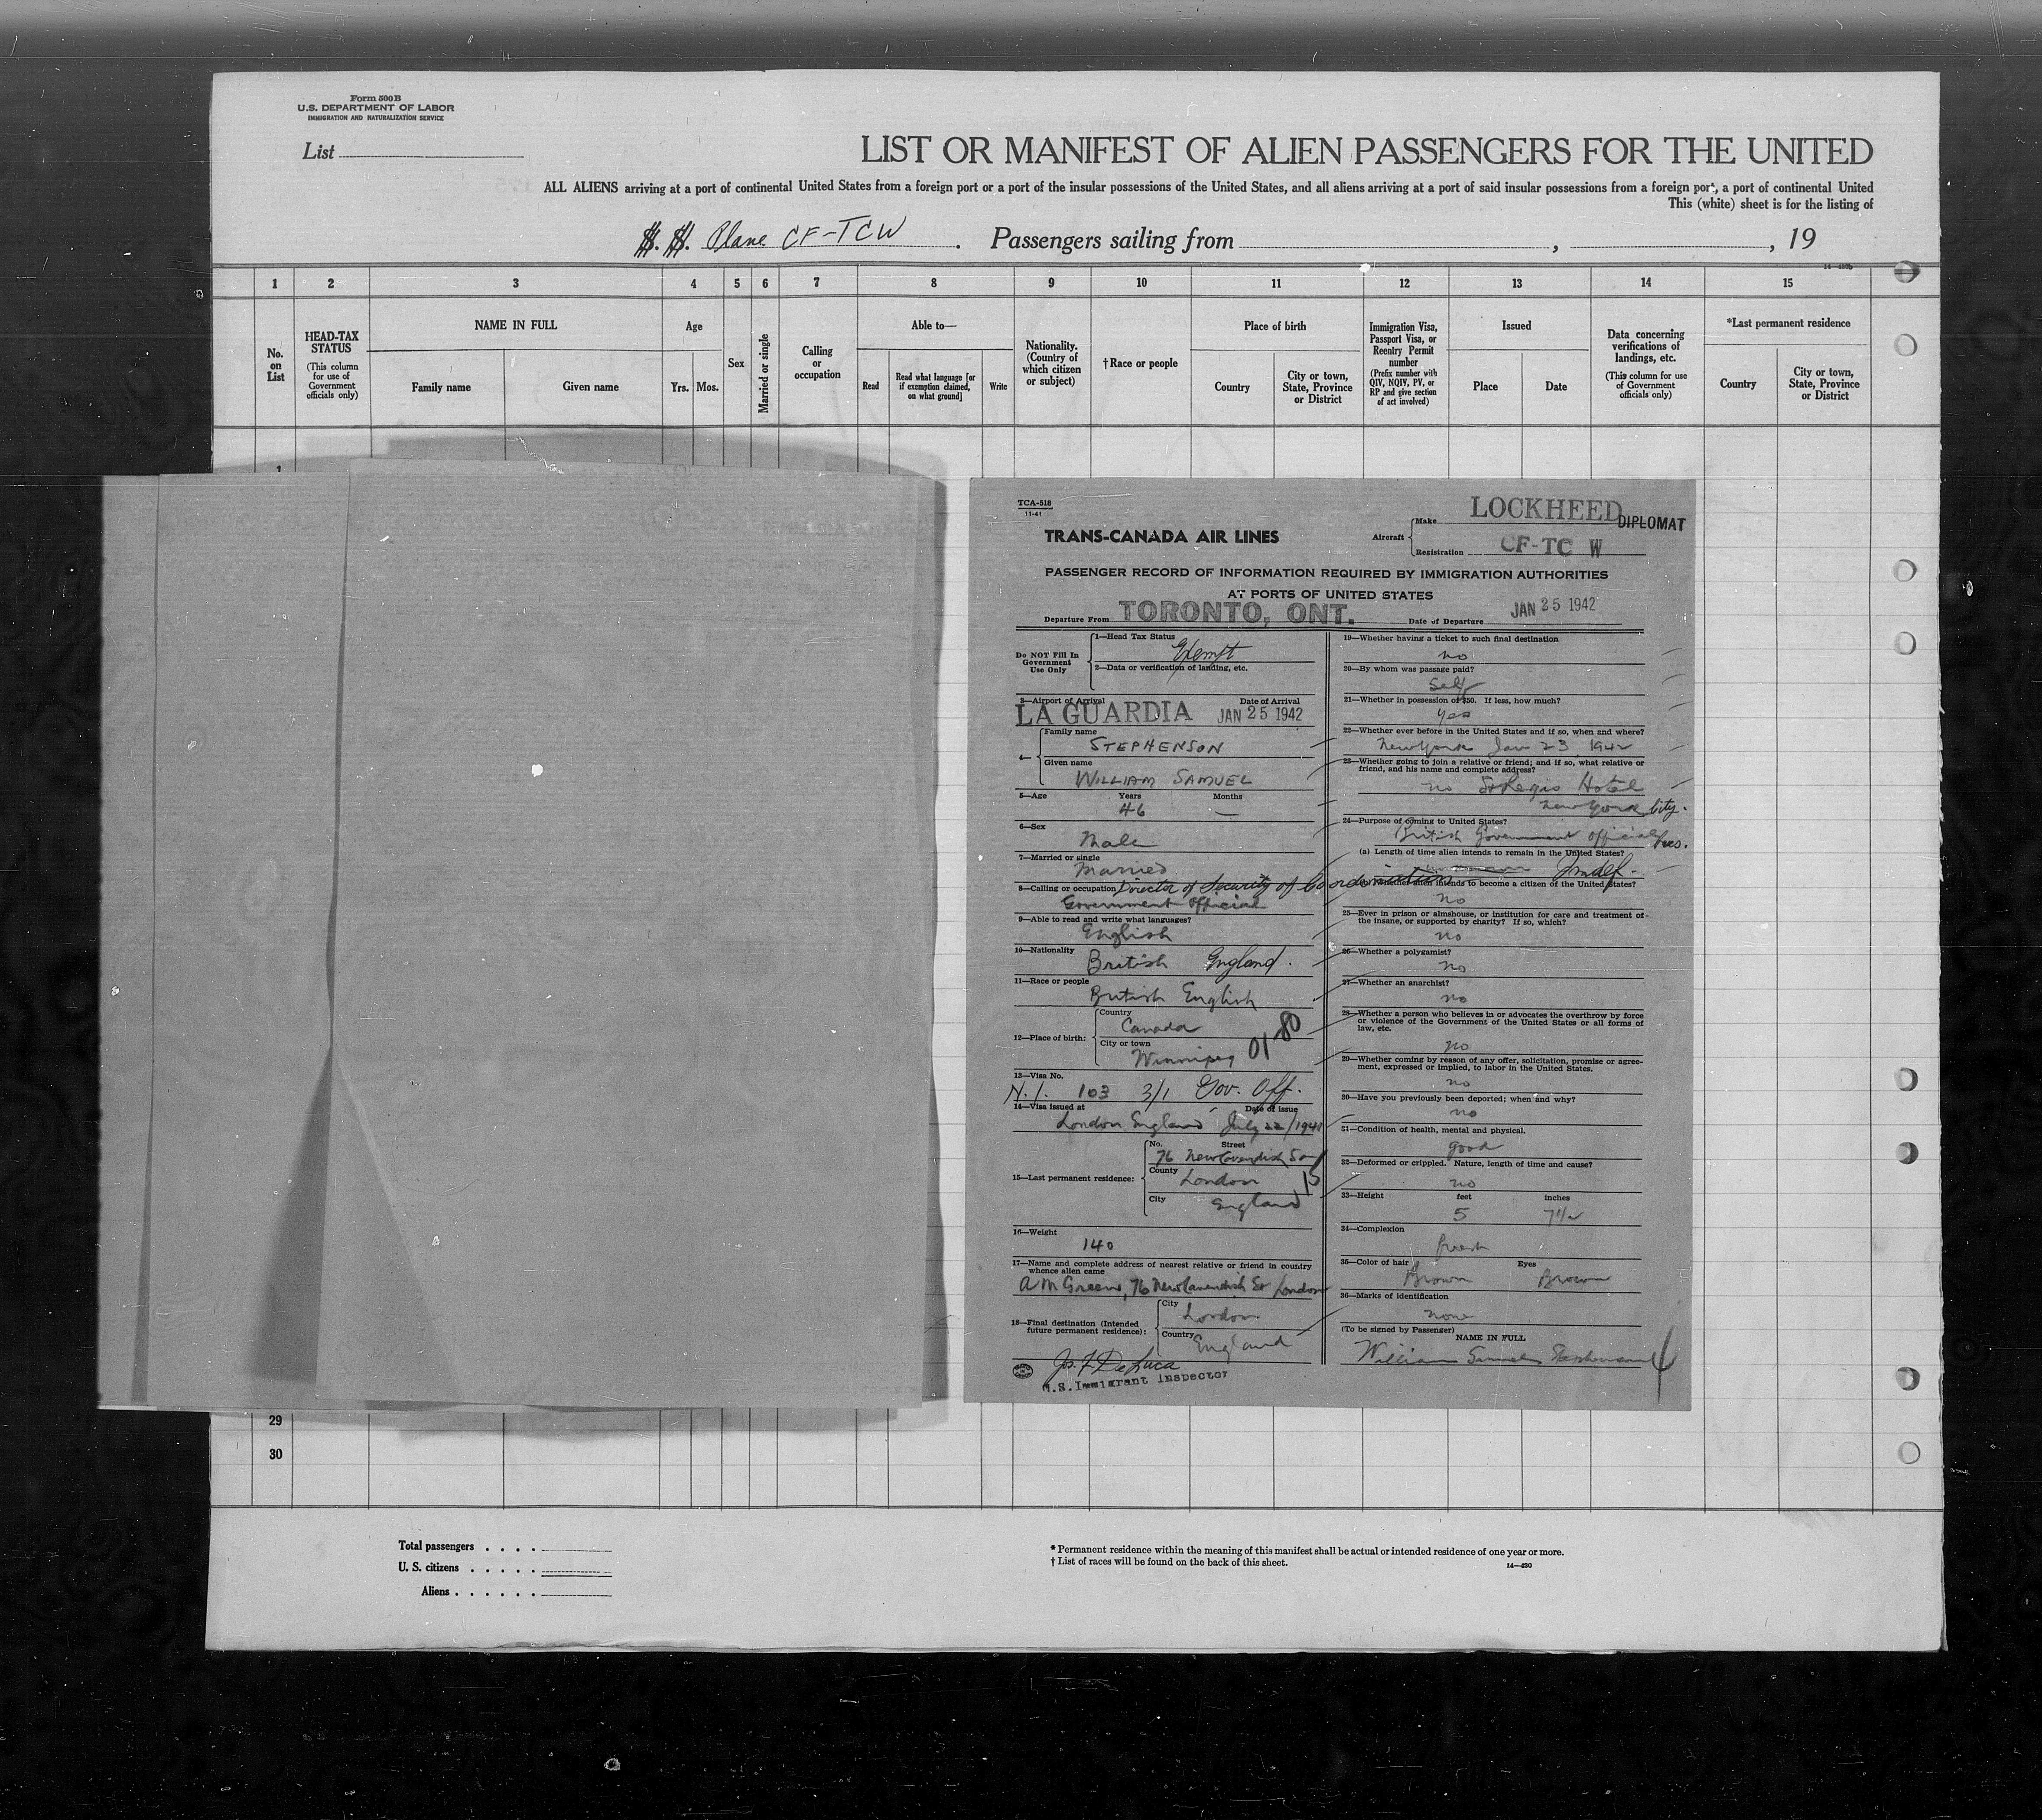 Form 500 B
U.S. DEPARTMENT OF LABOR
IMMIGRATION AND NATURALIZATION SERVICE
List
LIST OR MANIFEST OF ALIEN PASSENGERS FOR THE UNITED
ALL ALIENS arriving at a port of continental United States from a foreign port or a port of the insular possessions of the United States, and all aliens arriving at a port of said insular possessions from a foreign port, a port of continental United
This (white) sheet is for the listing of
S. S. Plane CF-TCW . Passengers sailing from , , 19
1 2 3 4 5 6 7 8 9 10 11 12 13 14 15
No. on List
HEAD-TAX STATUS
(This column for use of Government officials only)
NAME IN FULL
Family name
Given name
Age
Yrs. Mos.
Sex
Married or single
Calling or occupation
Able to—
Read
Read what language [or if exemption claimed, on what ground]
Write
Nationality. (Country of which citizen or subject)
†Race or people
Place of birth
Country
City or town, State, Province or District
Immigration Visa, Passport Visa, or Reentry Permit number
(Prefix number with QIV, NQIV, PV, or RP and give section of act involved)
Issued
Place
Date
Data concerning verifications of landings, etc.
(This column for use of Government officials only)
*Last permanent residence
Country
City or town, State, Province or District
1
TCA-518
11-41
TRANS-CANADA AIR LINES
Aircraft
Make LOCKHEED
DIPLOMAT
Registration CF-TC W
PASSENGER RECORD OF INFORMATION REQUIRED BY IMMIGRATION AUTHORITIES
AT PORTS OF UNITED STATES
Departure From TORONTO, ONT. Date of Departure JAN 25 1942
Do NOT Fill In Government Use Only
1—Head Tax Status
Exempt
2—Data or verification of landing, etc.
3—Airport of Arrival Date of Arrival
LA GUARDIA JAN 25 1942
4—
Family name
STEPHENSON
Given name
WILLIAM SAMUEL
5—Age Years Months
46 —
6—Sex
Male
7—Married or single
Married
8—Calling or occupation Director of Security of Coordination
Government Official
9—Able to read and write what languages?
English
10—Nationality
British England.
11—Race or people
British English
12—Place of birth:
Country
Canada
City or town
Winnipeg
01 80
13—Visa No.
N.I. 103 3/1 Gov. Off.
14—Visa issued at Date of issue
London England July 22/1941
15—Last permanent residence:
No. Street
76 New Cavendish St
County
London
15
City
England
16—Weight
140
17—Name and complete address of nearest relative or friend in country
whence alien came
A M Greene, 76 New Cavendish St London
18—Final destination (Intended
future permanent residence):
City
London
Country
England
Jos. F. DeLuca
U.S. Immigrant Inspector
19—Whether having a ticket to such final destination
no
20—By whom was passage paid?
Self
21—Whether in possession of $50. If less, how much?
yes
22—Whether ever before in the United States and if so, when and where?
New York Jan 23 1942
23—Whether going to join a relative or friend; and if so, what relative or
friend, and his name and complete address?
no St Regis Hotel
New York City.
24—Purpose of coming to United States?
British Government official
(a) Length of time alien intends to remain in the United States?
Indef.
intends to become a citizen of the United States?
no
25—Ever in prison or almshouse, or institution for care and treatment of
the insane, or supported by charity? If so, which?
no
26—Whether a polygamist?
no
27—Whether an anarchist?
no
28—Whether a person who believes in or advocates the overthrow by force
or violence of the Government of the United States or all forms of
law, etc.
no
29—Whether coming by reason of any offer, solicitation, promise or agree-
ment, expressed or implied, to labor in the United States.
no
30—Have you previously been deported; when and why?
no
31—Condition of health, mental and physical.
good
32—Deformed or crippled. Nature, length of time and cause?
no
33—Height feet inches
5 7 1/2
34—Complexion
fresh
35—Color of hair Eyes
Brown Brown
36—Marks of identification
none
(To be signed by Passenger)
NAME IN FULL
William Samuel Stephenson
29
30
Total passengers
U. S. citizens
Aliens
* Permanent residence within the meaning of this manifest shall be actual or intended residence of one year or more.
† List of races will be found on the back of this sheet.
14—430